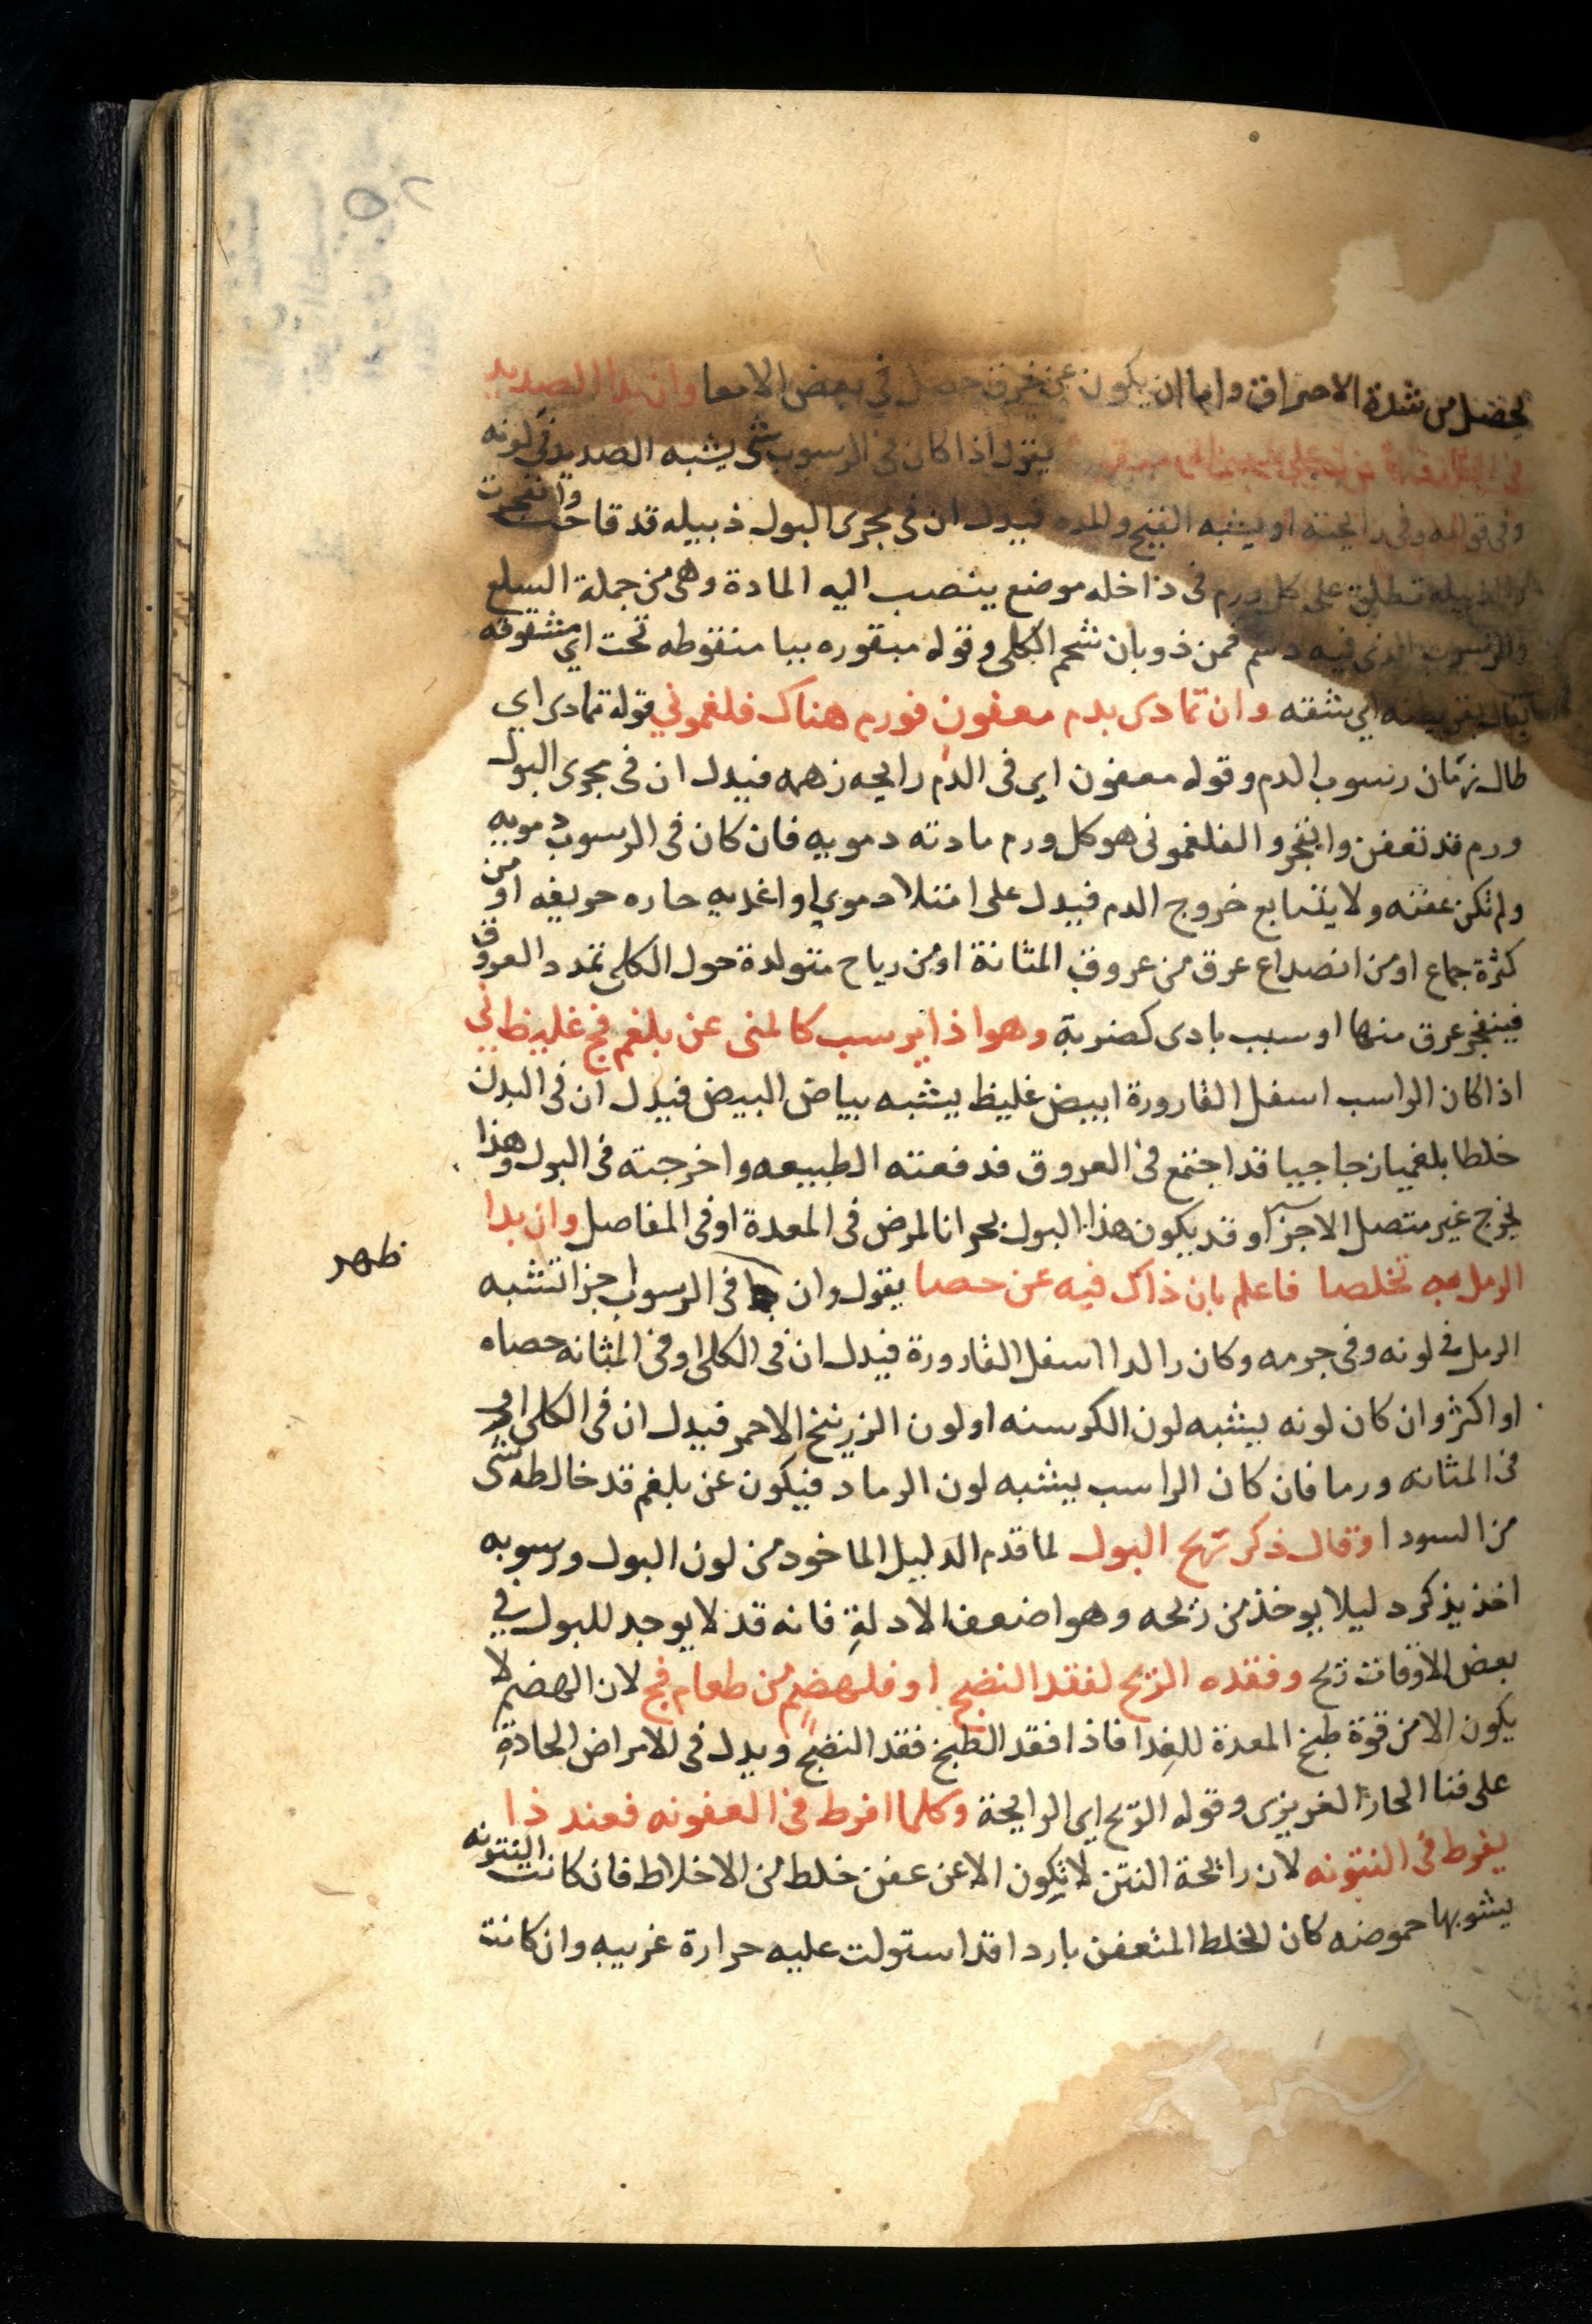 يحصل من شدة الاحتراق واما ان يكون عن خرق حصل في بعض الامعا وان بدا الصديد
يقول اذا كان في الرسوب شي يشبه الصديد في لونه
وفي قوامه وفي رايحته او يشبه القيح والمده فيدل ان في مجرى البول ذبيله قد قاحت وانفجرت
والذبيله تطلق على كل ورم في داخله موضع ينصب اليه المادة وهي من جملة السلع
والرسوب الذي فيه دسم فمن ذوبان شحم الكلى وقوله مبقوره ببا منقوطه تحت اي مشقوقه
يقال بقر بطنه اي شقه وان تمادى بدم معفون فورم هناك فلغموني قوله تمادى اي
طال زمان رسوب الدم وقوله معفون اي في الدم رايحه زهمه فيدل ان في مجرى البول
ورم قد تعفن وانفجر والفلغموني هو كل ورم مادته دمويه فان كان في الرسوب دمويه
ولم تكن عفنه ولا يتتابع خروج الدم فيدل على امتلا دموي او اغديه حاره حريفه او من
كثرة جماع او من انصداع عرق من عروق المثانة او من رياح متولدة حول الكلى تمدد العروق
فينفجر عرق منها او سبب بادى كضربة وهو اذا يرسب كالمنى عن بلغم فج غليظ ني
اذا كان الراسب اسفل القارورة ابيض غليظ يشبه بياض البيض فيدل ان في البدن
خلطا بلغميا زجاجيا قد اجتمع في العروق فدفعته الطبيعه واخرجته في البول وهذا
يخرج غير متصل الاجزآ وقد يكون هذا البول بحرانا لمرض في المعدة او في المفاصل وان بدا
الرمل به تخلصا فاعلم بان ذاك فيه عن حصا يقول وان في الرسوب اجزا تشبه
ظهر
الرمل في لونه وفي جرمه وكان راكدا اسفل القارورة فيدل ان في الكلى او في المثانه حصاه
او اكثر وان كان لونه يشبه لون الكرسنه او لون الزرنيخ الاحمر فيدل ان في الكلى او
في المثانه ورما فان كان الراسب يشبه لون الرماد فيكون عن بلغم قد خالطه شي
من السودا وقال ذكر ريح البول لما قدم الدليل الماخود من لون البول ورسوبه
اخذ يذكر دليلا يوخذ من ريحه وهو اضعف الادلة فانه قد لا يوجد للبول في
بعض الاوقات ريح وفقده الريح لفقد النضج او فلهضم من طعام فج لان الهضم لا
يكون الا من قوة طبخ المعدة للغدا فاذا فقد الطبخ فقد النضج ويدل في الامراض الحادة
على فنا الحار الغريزى وقوله الريح اي الرايحة وكلما افرط في العفونه فعند ذا
يفرط في النتونه لان رائحة النتن لا تكون الا عن عفن خلط من الاخلاط فان كانت النتونه
يشوبها حموضه كان الخلط المتعفن باردا قد استولت عليه حرارة غريبه وان كانت